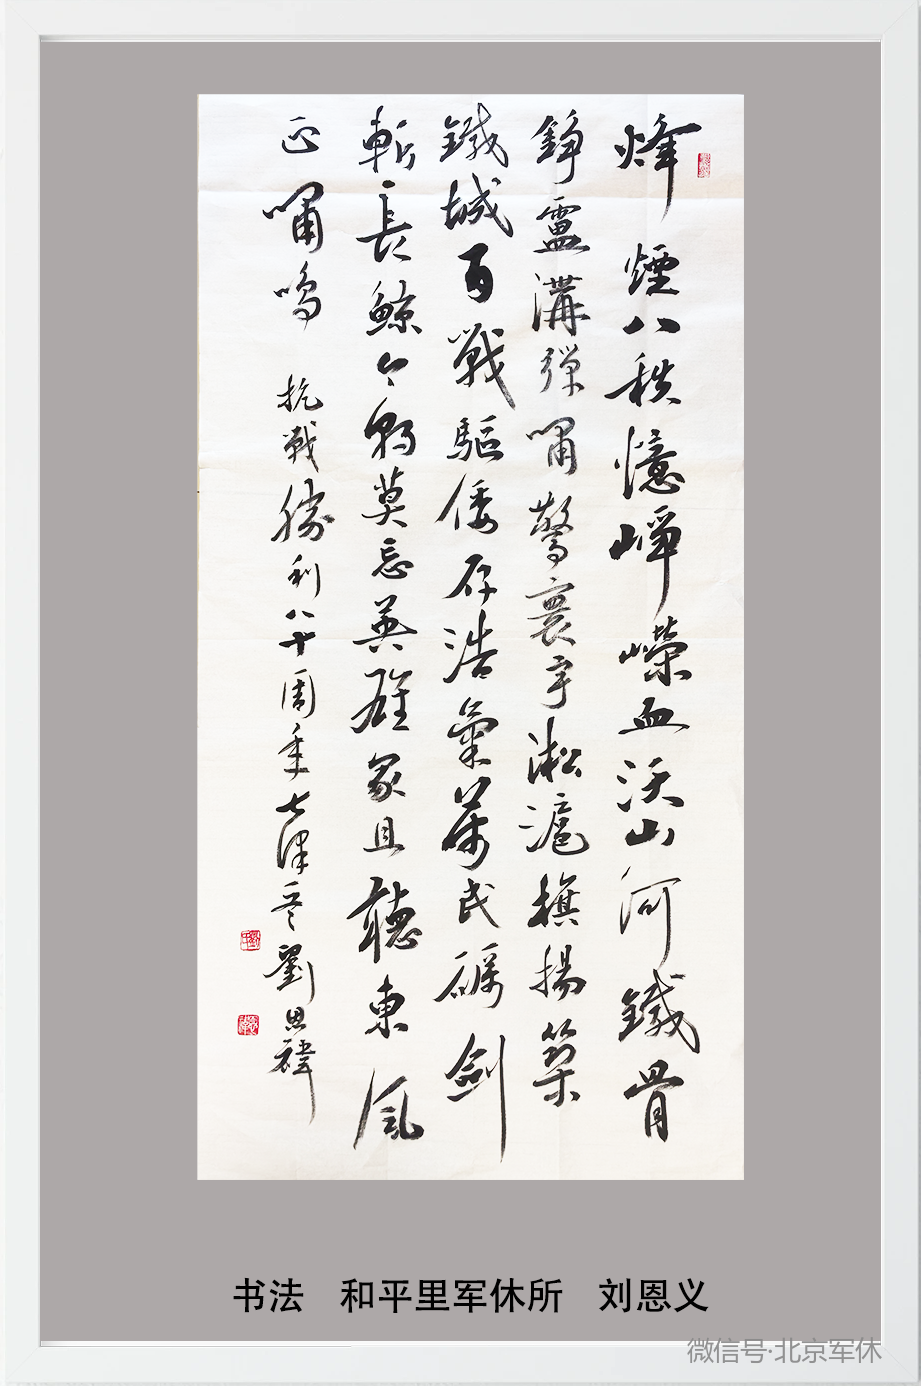 烽煙八秩憶崢嶸血沃山河鐵骨
錚盧溝弹嘯驚寰宇淞滬旗揚築
鐵城百戰驅倭存浩氣萬民礪劍
斬長鲸今朝莫忘英雄冢且聽東風
正嘯鳴 抗戰勝利八十周年七律 劉恩
书法 和平里军休所 刘恩义
微信号·北京军休